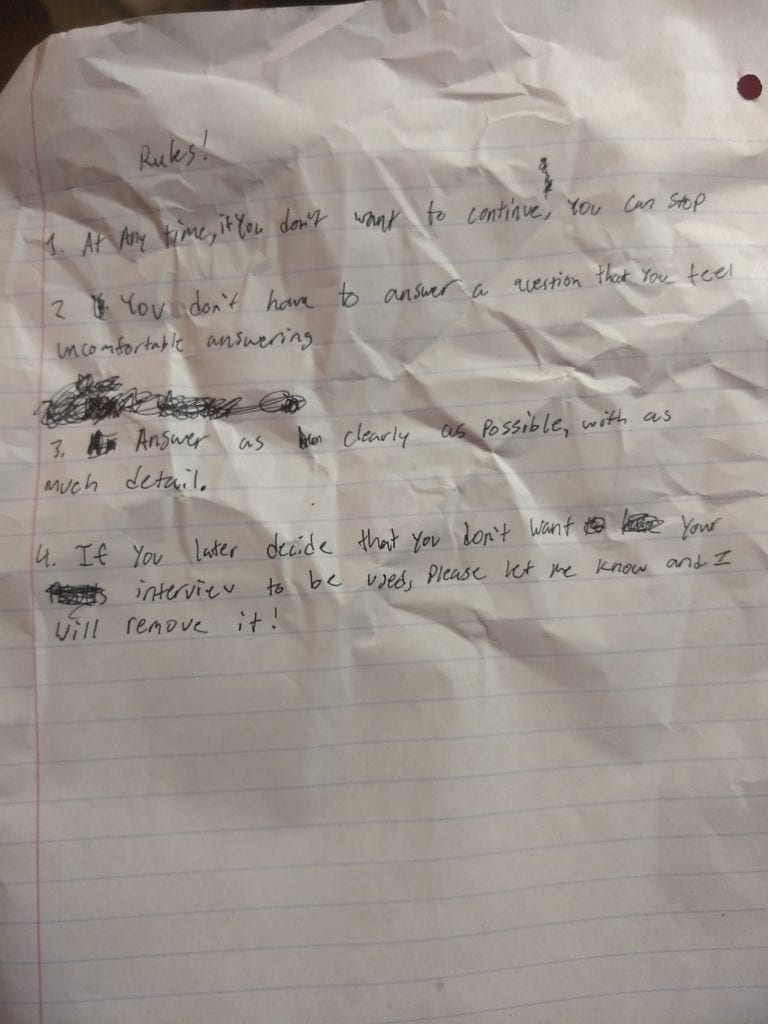 Rules!
1. At Any time, if You don't want to continue, You can stop
2 You don't have to answer a question that You feel
uncomfortable answering
3. Answer as clearly as Possible, with as
much detail.
4. If You later decide that You don't want Your
interview to be used, Please let me know and I
will remove it!